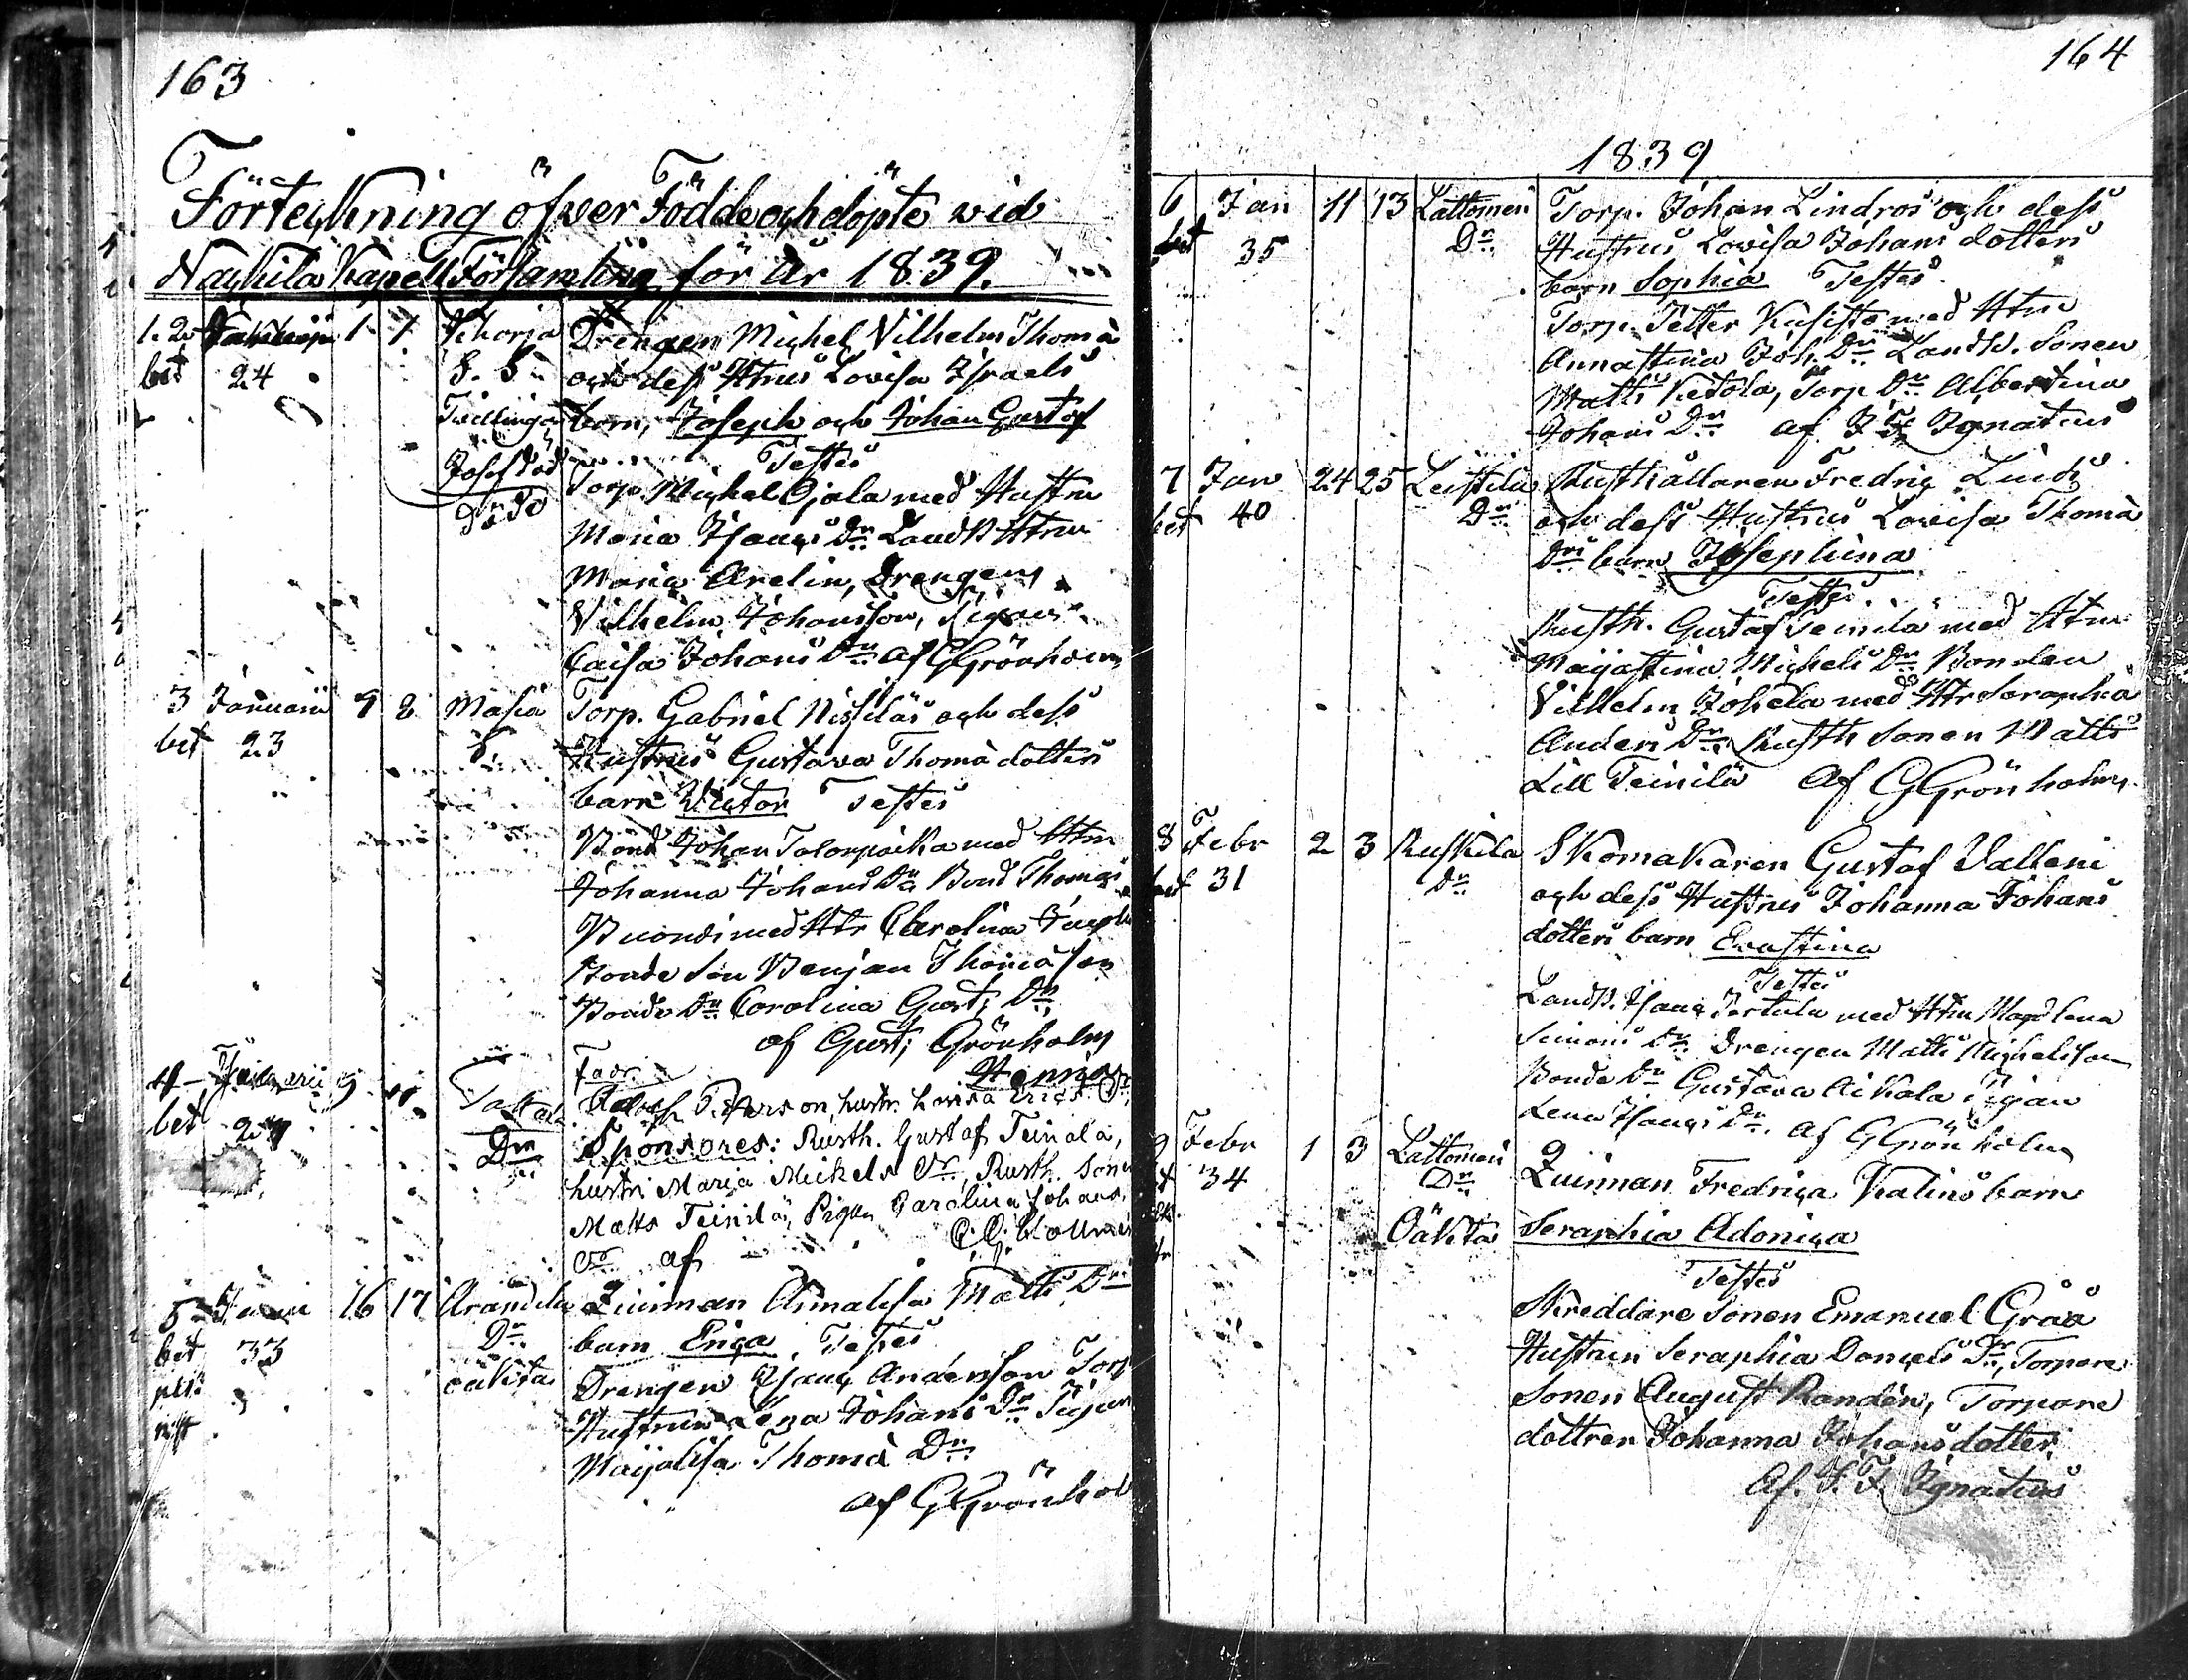 163
Förteckning öfver Födde och döpte vid
Nackila Kapell Församling för År 1839.
1. 2 1 1 Vihorja Drengen Michel Vilhelm Thomæ
bet 24 S. S. och dess Htrus Lovisa Israels
Tvillingar barn, Joseph och Johan Gustaf
Josef död Testes
Torp Michel Ojala med Hustru
Maria Isaacs Dr Landb Htru
Maria Arelin, Drengen
Vilhelm Johansson, Pigan
Caisa Johans Dr af G Grönholm
3 Januarii 7 8 Masia Torp. Gabriel Nissilas och dess
bet 23 S. Hustrus Gustava Thomæ dotters
barn Victor Testes
Bond Johan Talonpoika med Htru
Johanna Johans Dr Bond Thomas
med Htr Carolina
Bonde Son Benjam Thomæson
Bonde Dr Carolina Gust; Dr
af Gust; Grönholm
4 Januarii 9 Fadr.
bet Adolph Peterson, hustr. Lovisa Erics Dr
Dr Sponsores: Rusth. Gustaf Teinala,
hustr. Maria Mickels Dr, Rusth. Sonen
Matts Teinilä, Pigan Carolina Johans
Dr af
5 16 17 Arandila Qvinnan Annalisa Matts Dr
bet 33 Dr barn Erica Testes
oäkta Drengen Isaac Andersson Torp
Hustrun Lena Johans Dr Pigan
Maijalisa Thomæ Dr
af G Grönhol
164
1839
6 Jan 11 13 Lattomeri Torp. Johan Lindros och dess
bet 35 Dr Hustrus Lovisa Johans dotters
barn Sophia Testes
Torp. Petter Kusisto med Htru
Annastina Joh. Dr Landb. Sonen
Matts Ketola, Torp Dr Albertina
Johans Dr af J F Ignatius
7 Jan 24 25 Leistila Rusthållaren Fredric Lind
bet 40 Dr och dess Hustrus Lovisa Thomæ
Drs barn Josephina
Testes
Rusth. Gustaf Teinila med Htru
Maijastina Michels Dr Bonden
Vilhelm Johela med Htr Seraphia
Anders Dr Rusth Sonen Matts
Lill Teinilä Af G Grönholm
8 Febr 2 3 Ruskila Skomakaren Gustaf Valleni
bet 31 Dr och dess Hustrus Johanna Johans
dotters barn Evastina
Testes
Landb. Isaac Pertula med Htru Magdlena
Simons Dr Drengen Matts Michelsson
Bonde Dr Gustava Aikala Pigan
Lena Isaacs Dr. af G Grönholm
9 Febr 1 3 Lattomeri Qvinnan Fredrica Valins barn
34 Dr
Oäkta Seraphia Adonica
Testes
Skreddare Sonen Emanuel Gråå
Hustrun Seraphia Daniels Dr, Torpare
Sonen August Randén, Torpare
dottren Johanna Johansdotter
Af. J. F. Ignatius